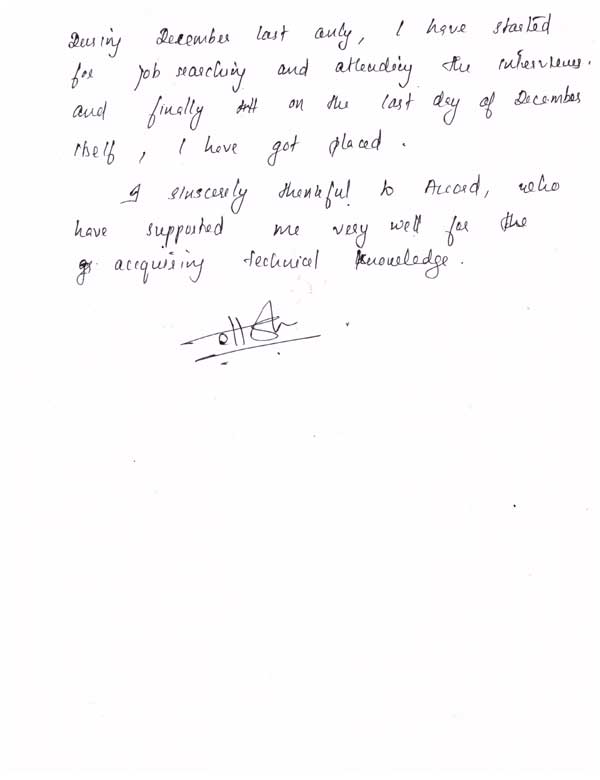 During December last only, I have started
for job searching and attending the interviews.
and finally on the last day of December
itself, I have got placed.
I sinscerely thankful to Accord, who
have supported me very well for the
accquising technical knowledge.